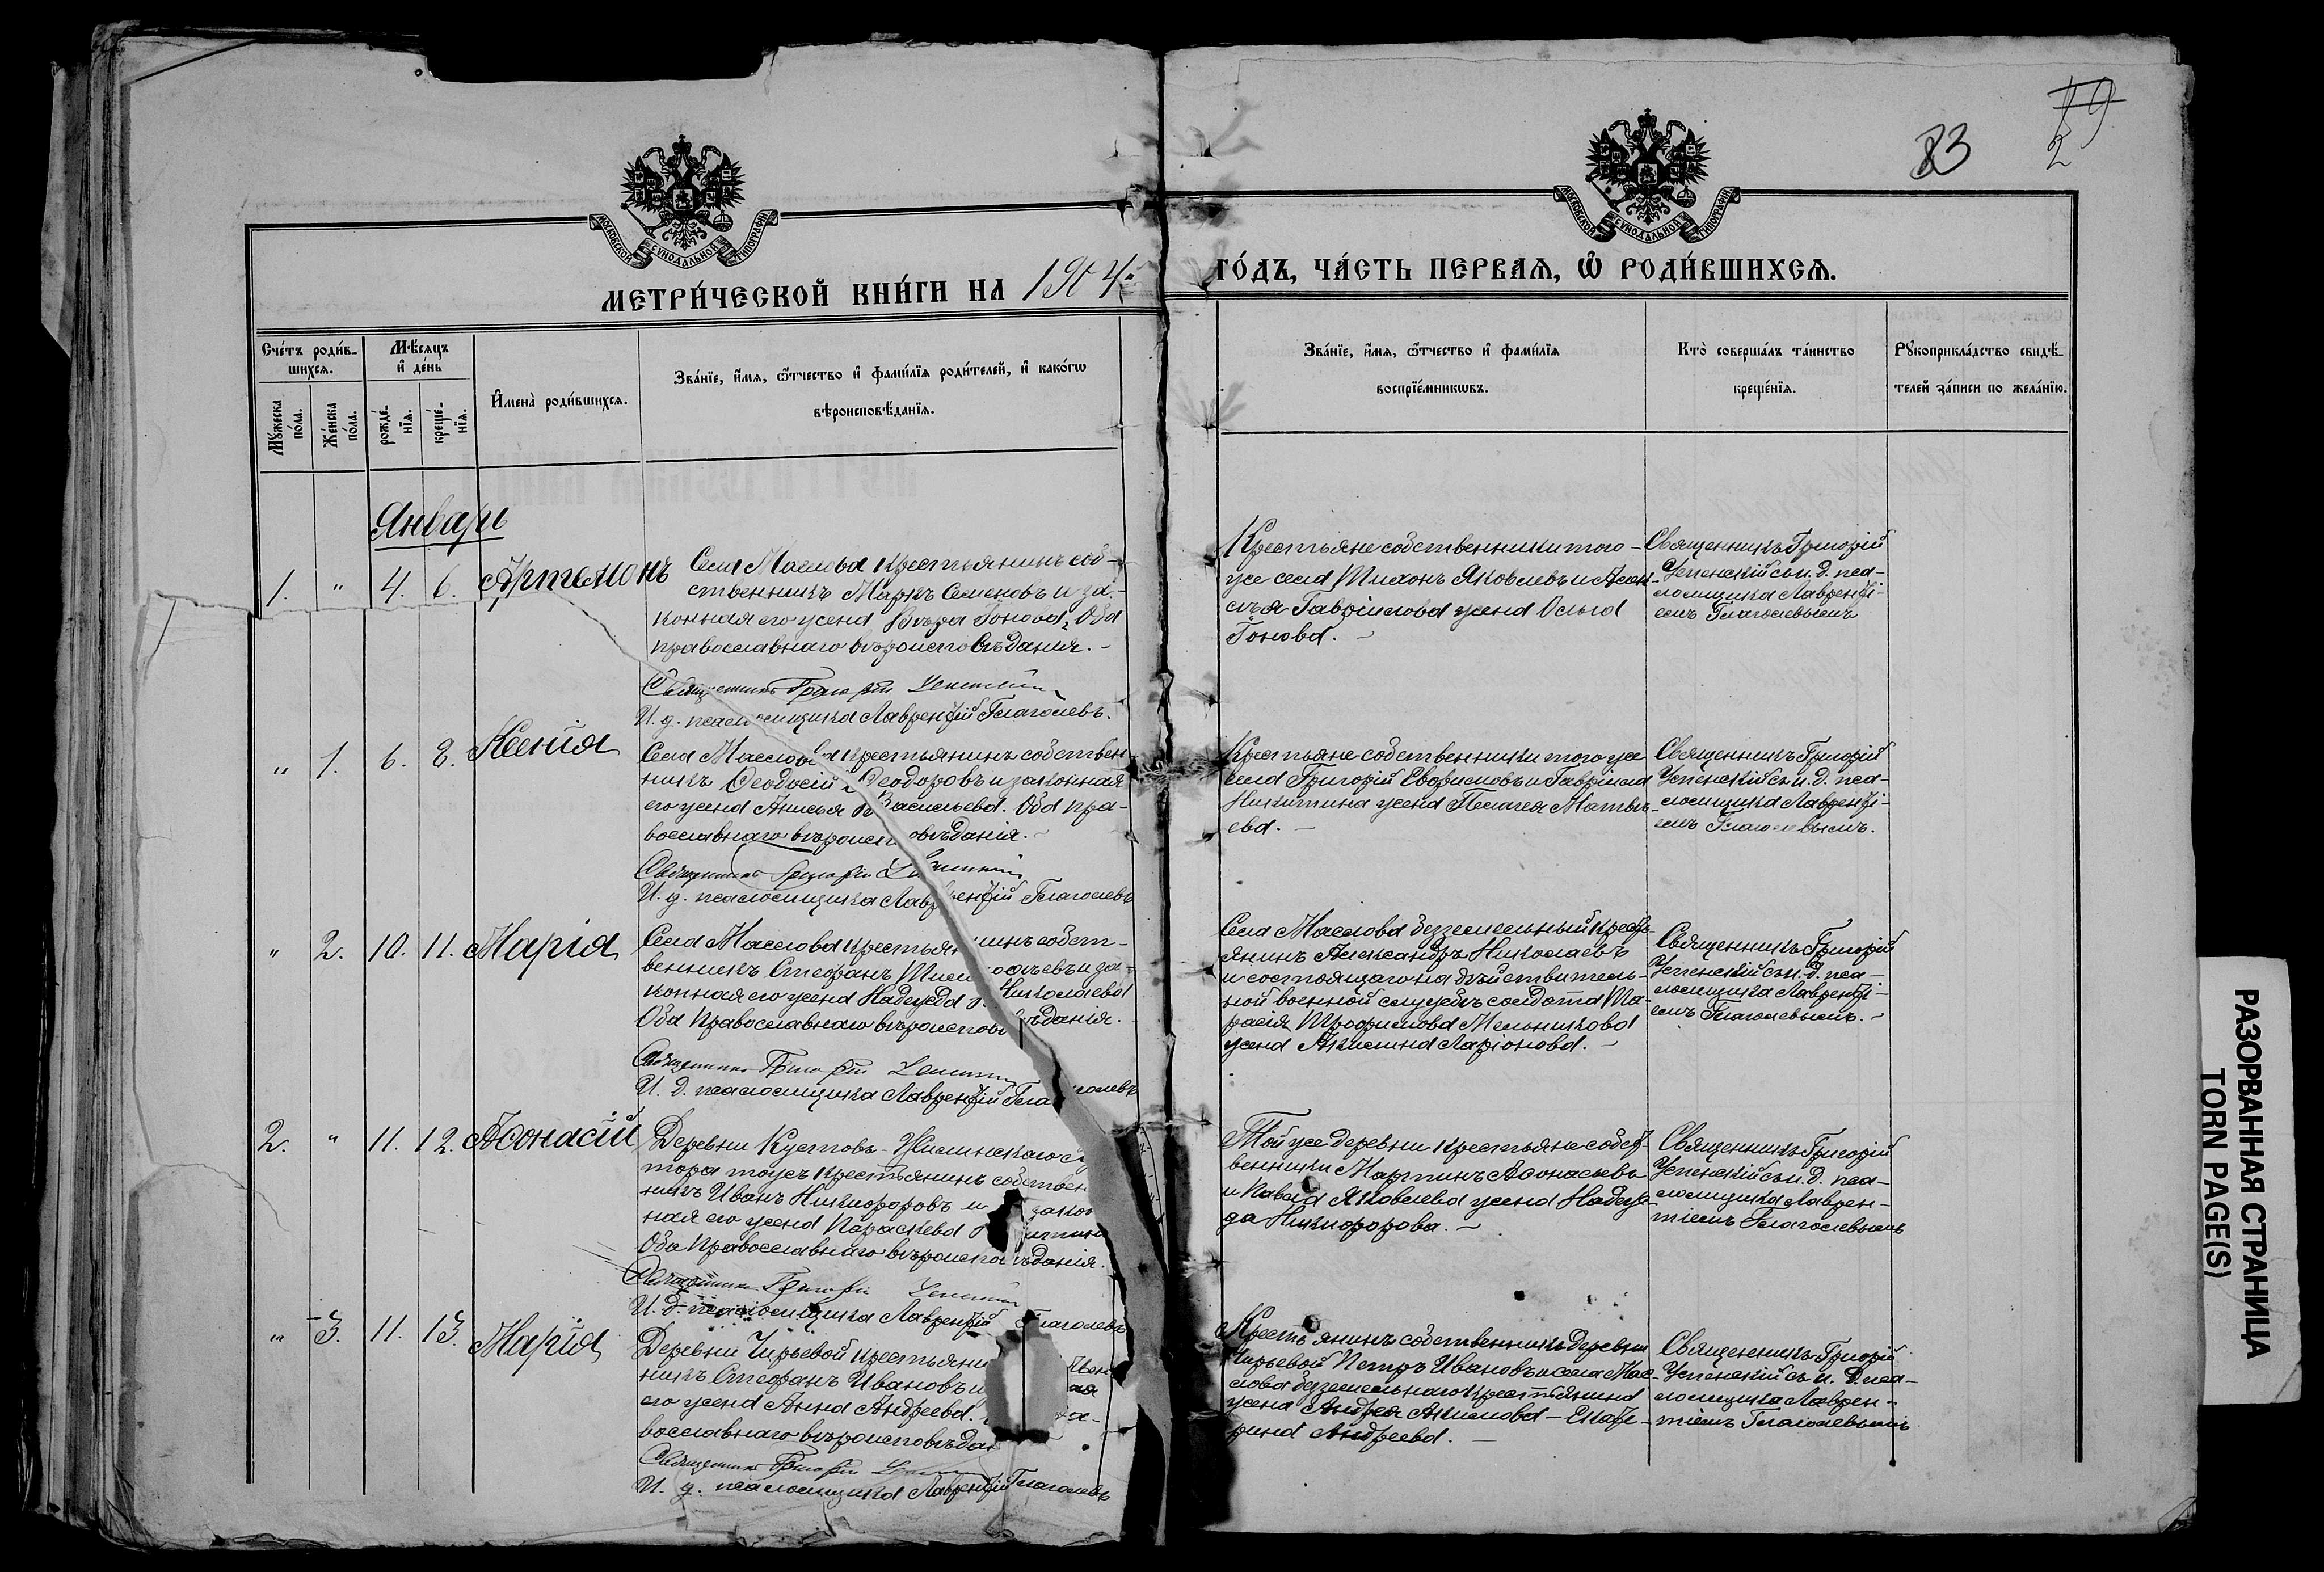 83
29
2
МОСКОВСКОЙ СѴНОДАЛЬНОЙ ТИПОГРАФІИ
МОСКОВСКОЙ СѴНОДАЛЬНОЙ ТИПОГРАФІИ
МЕТРИ́ЧЕСКОЙ КНИ́ГИ НА 1904й
ГО́ДЪ, ЧА́СТЬ ПЕРВАѦ, Ѿ РОДИ́ВШИХСѦ.
Сче́тъ роди́в-
шихсѧ.
Мꙋ́жеска по́ла.
Же́нска по́ла.
Мѣ́сѧцъ
и҆ де́нь
рожде́-
нїѧ.
креще́-
нїѧ.
И҆мена̀ роди́вшихсѧ.
Зва́нїе, и҆́мѧ, ѻ҆́тчество и҆ фами́лїѧ роди́телей, и҆ како́гѡ
вѣроисповѣ́данїѧ.
Зва́нїе, и҆́мѧ, ѻ҆́тчество и҆ фами́лїѧ
воспрїе́мникѡвъ.
Кто̀ соверша́лъ та́инство
креще́нїѧ.
Рꙋкоприкла́дство свидѣ́-
телей за́писи по жела́нїю.
Январь
1. " 4. 6. Артемонъ
Села Маслова крестьянинъ соб-
ственникъ Маркъ Семеновъ и за-
конная его жена Вѣра Іонова, Оба
православнаго вѣроисповѣдания.-
Священникъ Григорій Успенскій
И. д. псаломщика Лаврентій Глаголевъ.
Крестьяне собственники того-
же села Тихонъ Яковлевъ и Алек-
сѣя Гавріилова жена Ольга
Іонова.-
Священникъ Григорій
Успенскій съ и. д. пса-
ломщика Лаврентi-
емъ Глаголевымъ
" 1. 6. 8. Ксенія
Села Маслова крестьянинъ собствен
никъ Ѳеодосій Ѳеодоровъ и законная
его жена Анисья Васильева. Оба пра-
вославнаго вѣроисповѣданія.-
Священникъ Григорій Успенскій
И. д. псаломщика Лаврентій Глаголевъ
Крестьяне собственники того же
села Григорій Евфимовъ и Гавріила
Никитина жена Пелагея Матвѣ-
ева.-
Священникъ Григорій
Успенскій съ и. д. пса-
ломщика Лаврентi-
емъ Глаголевымъ.
" 2. 10. 11. Марія
Села Маслова крестьянинъ собст-
венникъ Стефанъ Тимофѣевъ и за-
конная его жена Надежда Николаева
Оба Православнаго вѣроисповѣданія.
Священникъ Григорій Успенскій
И. д. псаломщика Лаврентій Глаголевъ
Села Маслова безземельный кресть-
янинъ Александръ Николаевъ
и состоящаго на дѣйствитель-
ной военной службѣ солдата Та-
расія Трофимова Мельникова
жена Акилина Ларіонова.-
Священникъ Григорій
Успенскій съ и. д. пса-
ломщика Лаврентi-
емъ Глаголевымъ.-
2. " 11. 12. Аѳонасій
Деревни Кустовъ
тора тожъ крестьянинъ собствен
никъ Иванъ Никифоровъ и закон
ная его жена Параскева
Оба Православнаго вѣроисповѣдания.
Священникъ Григорій Успенскій
И. д. псаломщика Лаврентій Глаголевъ
Той же деревни крестьяне собст-
венники Мартинъ Аѳонасьевъ
и Павла Яковлева жена Надеж-
да Никифорова.-
Священникъ Григорій
Успенскій съ и. д. пса-
ломщика Лаврен-
тіемъ Глаголевымъ
" 3. 11. 13. Марія
Деревни Чирьевой крестьяни
никъ Стефанъ Ивановъ и
его жена Анна Андреева.
вославнаго вѣроисповѣдан
Священникъ Григорій Успенскій
И. д. псаломщика Лаврентій Глаголевъ
Крестьянинъ собственникъ деревни
Чирьевой Петръ Ивановъ и села Мас-
лова безземельнаго крестьянина
жена Андрея Акимова - Екате-
рина Андреева.-
Священникъ Григорій
Успенскій съ и. д. пса-
ломщика Лаврен-
тіемъ Глаголевымъ
РАЗОРВАННАЯ СТРАНИЦА
TORN PAGE(S)